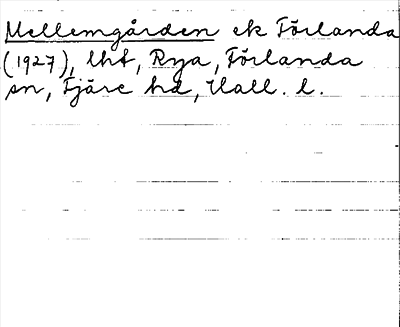 Mellemgården ek Förlanda
(1927), lht, Rya, Förlanda
sn, Fjäre hd, Hall. l.